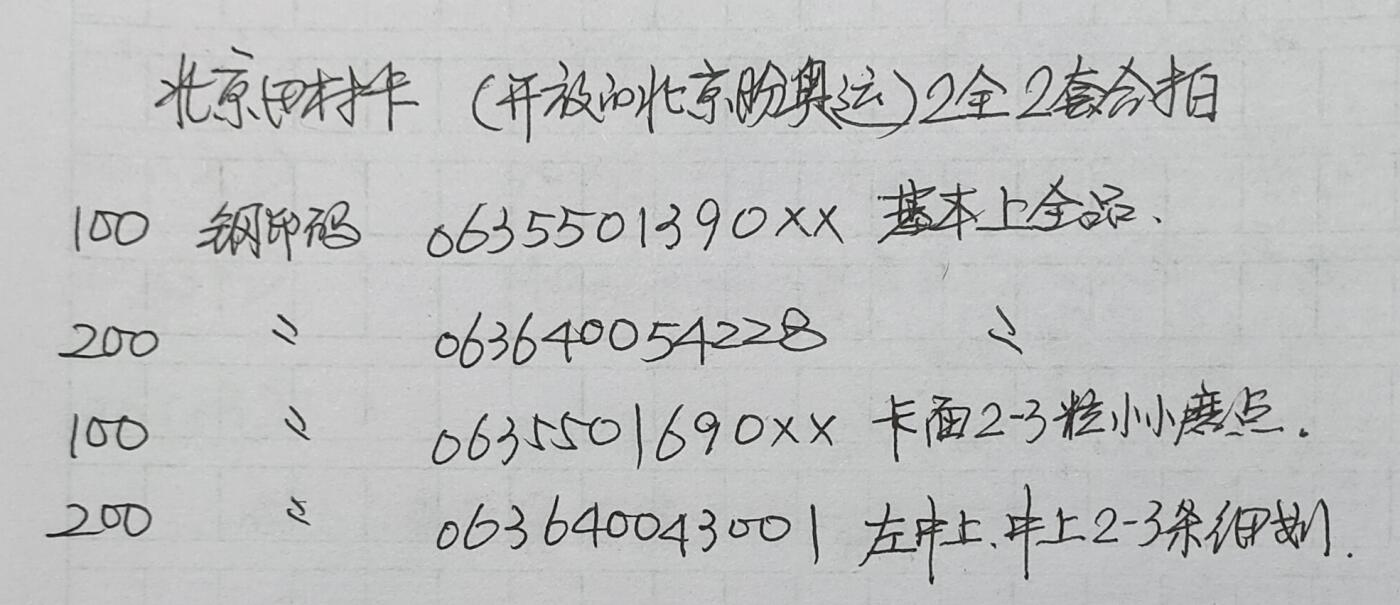 北京田村卡 (开放的北京盼奥运)2全2套合拍
100 钢印码 0635501390xx 基本上全品、
200 〃 063640054228 〃
100 〃 0635501690xx 卡面2-3粒小小磨点.
200 〃 063640043001 左中上、中上2-3条细划.